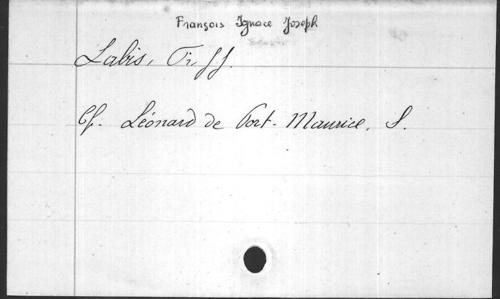 François Ignace Joseph
Labis, Fr. J J.
Cf. Léonard de Port-Maurice, S.